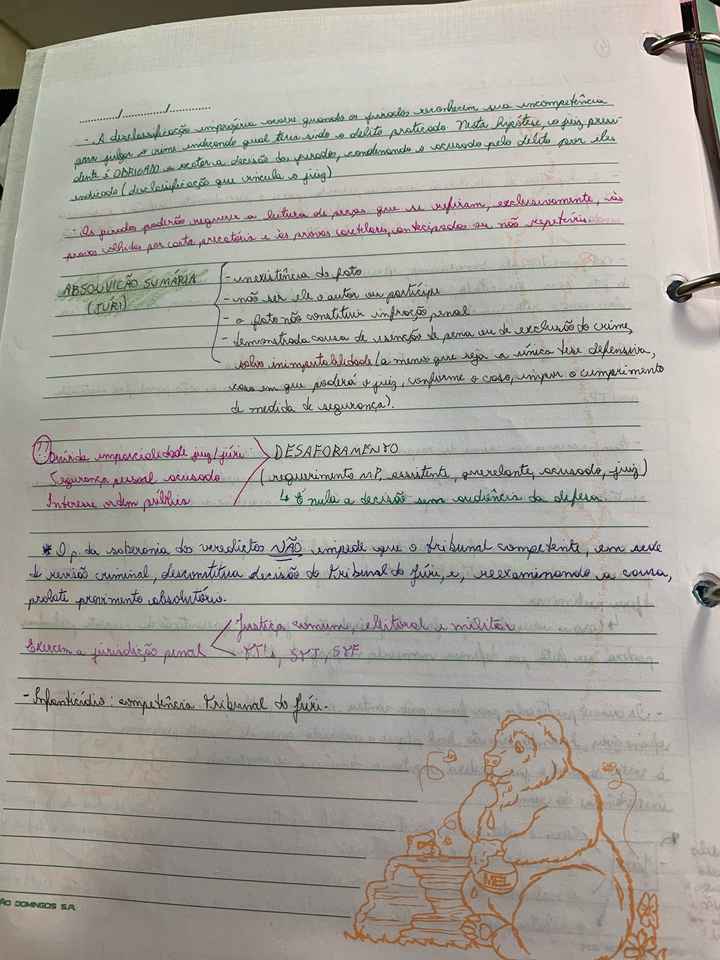 ............/............/............
- A desclassificação imprópria ocorre quando os jurados reconhecem sua incompetência
para julgar o crime indicando qual teria sido o delito praticado. Nesta hipótese, o juiz presi-
dente é OBRIGADO a acatar a decisão dos jurados, condenando o acusado pelo delito por eles
indicado (desclassificação que vincula o juiz)
· Os jurados poderão requerer a leitura de peças que se refiram, exclusivamente, às
provas colhidas por carta precatória e às provas cautelares, antecipadas ou não repetíveis.
ABSOLVIÇÃO SUMÁRIA
(JÚRI)
- inexistência do fato
- não ser ele o autor ou partícipe
- o fato não constituir infração penal
- demonstrada causa de isenção de pena ou de exclusão do crime,
salvo inimputabilidade (a menos que seja a única tese defensiva,
caso em que poderá o juiz, conforme o caso, impor o cumprimento
de medida de segurança).
!! Dúvida imparcialidade juiz/júri
Segurança pessoal acusado
Interesse ordem pública
DESAFORAMENTO
(requerimento MP, assistente, querelante, acusado, juiz)
↳ É nula a decisão sem audiência da defesa.
* O p. da soberania dos veredictos NÃO impede que o tribunal competente, em sede
de revisão criminal, desconstitua decisão do tribunal do júri, e, reexaminando a causa,
prolate provimento absolutório.
Exercem a jurisdição penal
Justiça comum, eleitoral e militar
STJ, STF
- Infanticídio: competência Tribunal do Júri.
MEL
ÃO DOMINGOS S.A.